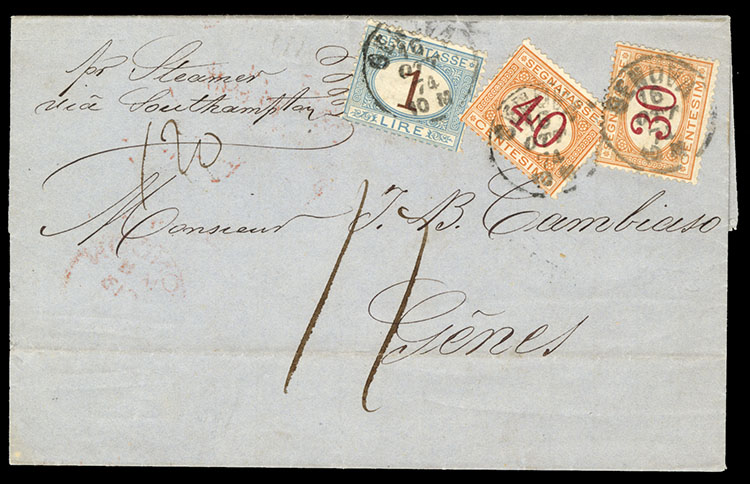 pr Steamer
via Southampton
120
Monsieur J. B. Cambiaso
Gênes
17
SEGNATASSE
1
LIRE
SEGNATASSE
40
CENTESIMI
SEGNATASSE
30
CENTESIMI
GENOVA